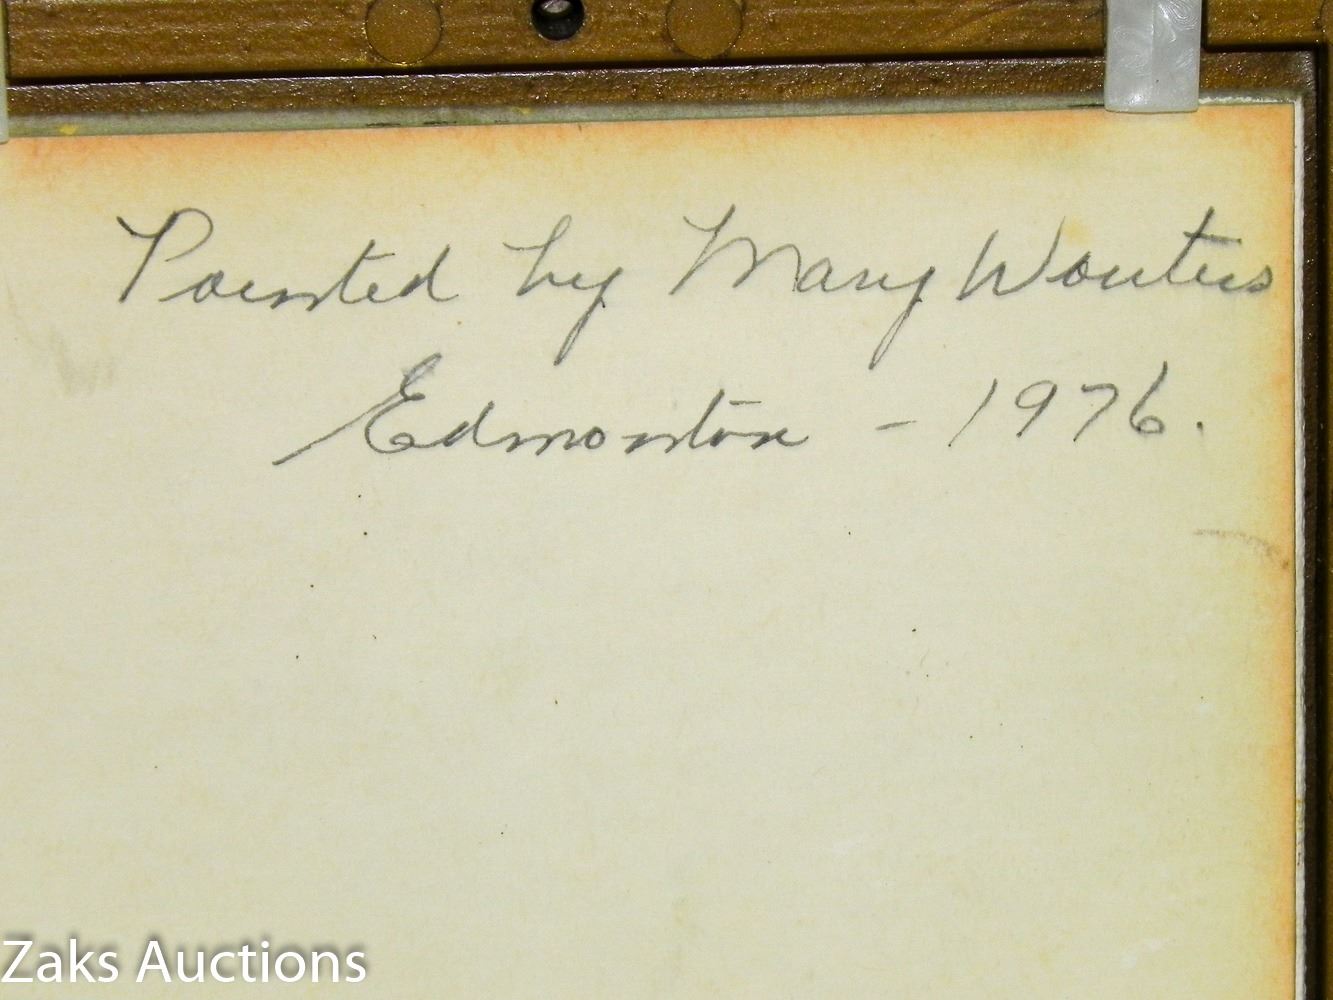 Painted by Mary Wouters
Edmonton - 1976.
Zaks Auctions